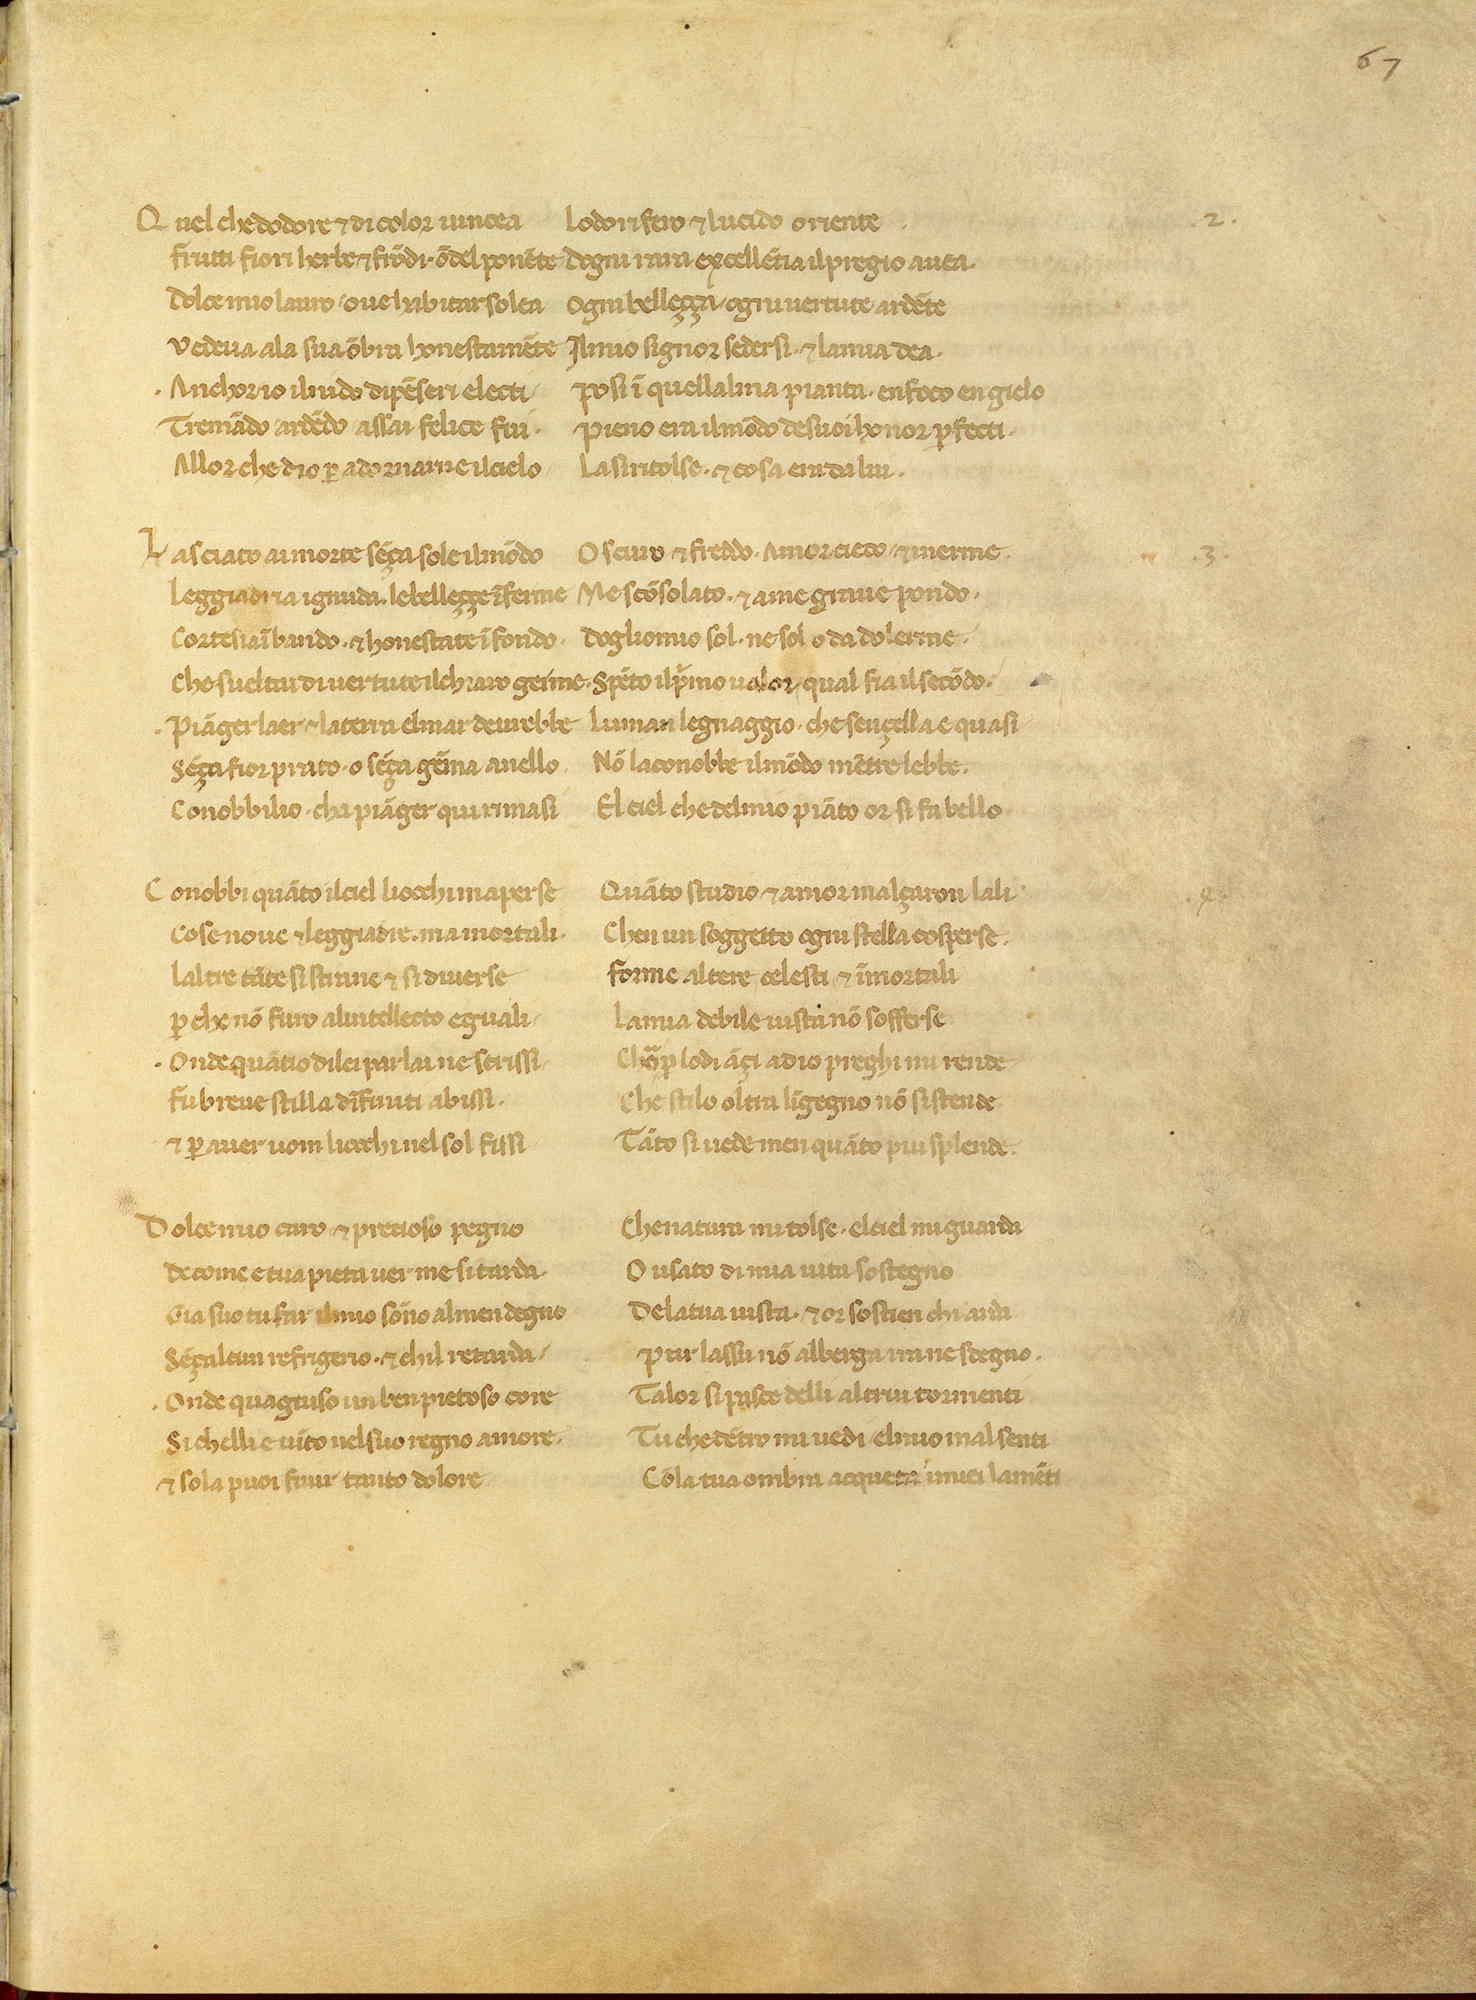 67
Q uel che dodore ⁊ di color uincea   Lodorifero ⁊ lucido oriente   .2.
Frutti fiori herbe ⁊ frōdi. ōdel ponēte   Dogni rara excellētia il pregio auea.
Dolce mio lauro / oue habitar solea   Ogni belleçça / ogni uertute ardēte
Vedeua ala sua ōbra honestamēte   Il mio signor sedersi. ⁊ la mia dea.
. Anchor io il nido di pēseri electi /   Posi ī quellalma pianta. en foco en gielo
Tremādo ardēdo assai felice fui.   Pieno era il mōdo de suoi honor perfecti.
Allor che dio ꝑ adornarne il cielo   La si ritolse. ⁊ cosa era da lui.
L asciato ai morte sēça sole il mōdo   Oscuro ⁊ freddo. Amor cieco / ⁊ inerme.   .3.
Leggiadria ignuda. le belleççe īferme   Me scōsolato. ⁊ a me graue pondo.
Cortesia ī bando. ⁊ honestate ī fondo.   Dogliomio sol. ne sol o da dolerme.
Che suelt ai di uertute il chiaro germe.   Spēto il p̄mo ualor / qual fia il secōdo.
. Piāger laer ⁊ la terra el mar deurebbe   Luman legnaggio. che sençella e quasi
Sēça fior prato. o sēça gēma anello   Nō la conobbe il mōdo mētre lebbe.
Conobbilio. cha piāger qui rimasi   El ciel che del mio piāto or si fa bello
C onobbi quāto il ciel liocchi maperse   Quāto studio ⁊ amor malçaron lali   .4.
Cose noue ⁊ leggiadre. ma mortali.   Chen un soggetto ogni stella cosperse.
Laltre tāte si strane ⁊ si diuerse   Forme altere celesti ⁊ īmortali
ꝑ che nō furo alintellecto eguali /   La mia debile uista nō sofferse
. Onde quātio di lei parlai ne scrissi /   Chor ꝑ lodi āçi a dio preghi mi rende
Fu breue stilla dīfiniti abissi.   Che stilo oltra līgegno nō si stende
⁊ ꝑ auer uom liocchi nel sol fissi   Tāto si uede men quāto piu splende.
D olce mio caro ⁊ pretioso pegno   Che natura mi tolse. el ciel mi guarda
De come e tua pieta uer me si tarda   O usato di mia uita sostegno
Gia suo tu far il mio sōno almen degno   De la tua uista. ⁊ or sostien chi arda
Sēçalcun refrigerio. ⁊ chil retarda /   Pur lassu nō alberga ira ne sdegno.
. Onde qua giuso un ben pietoso core   Talor si pasce delli altrui tormenti
Si chelli e uīto nel suo regno amore.   Tu che dētro mi uedi / el mio mal senti
⁊ sola puoi finir tanto dolore   Cō la tua ombra acqueta i miei lamēti